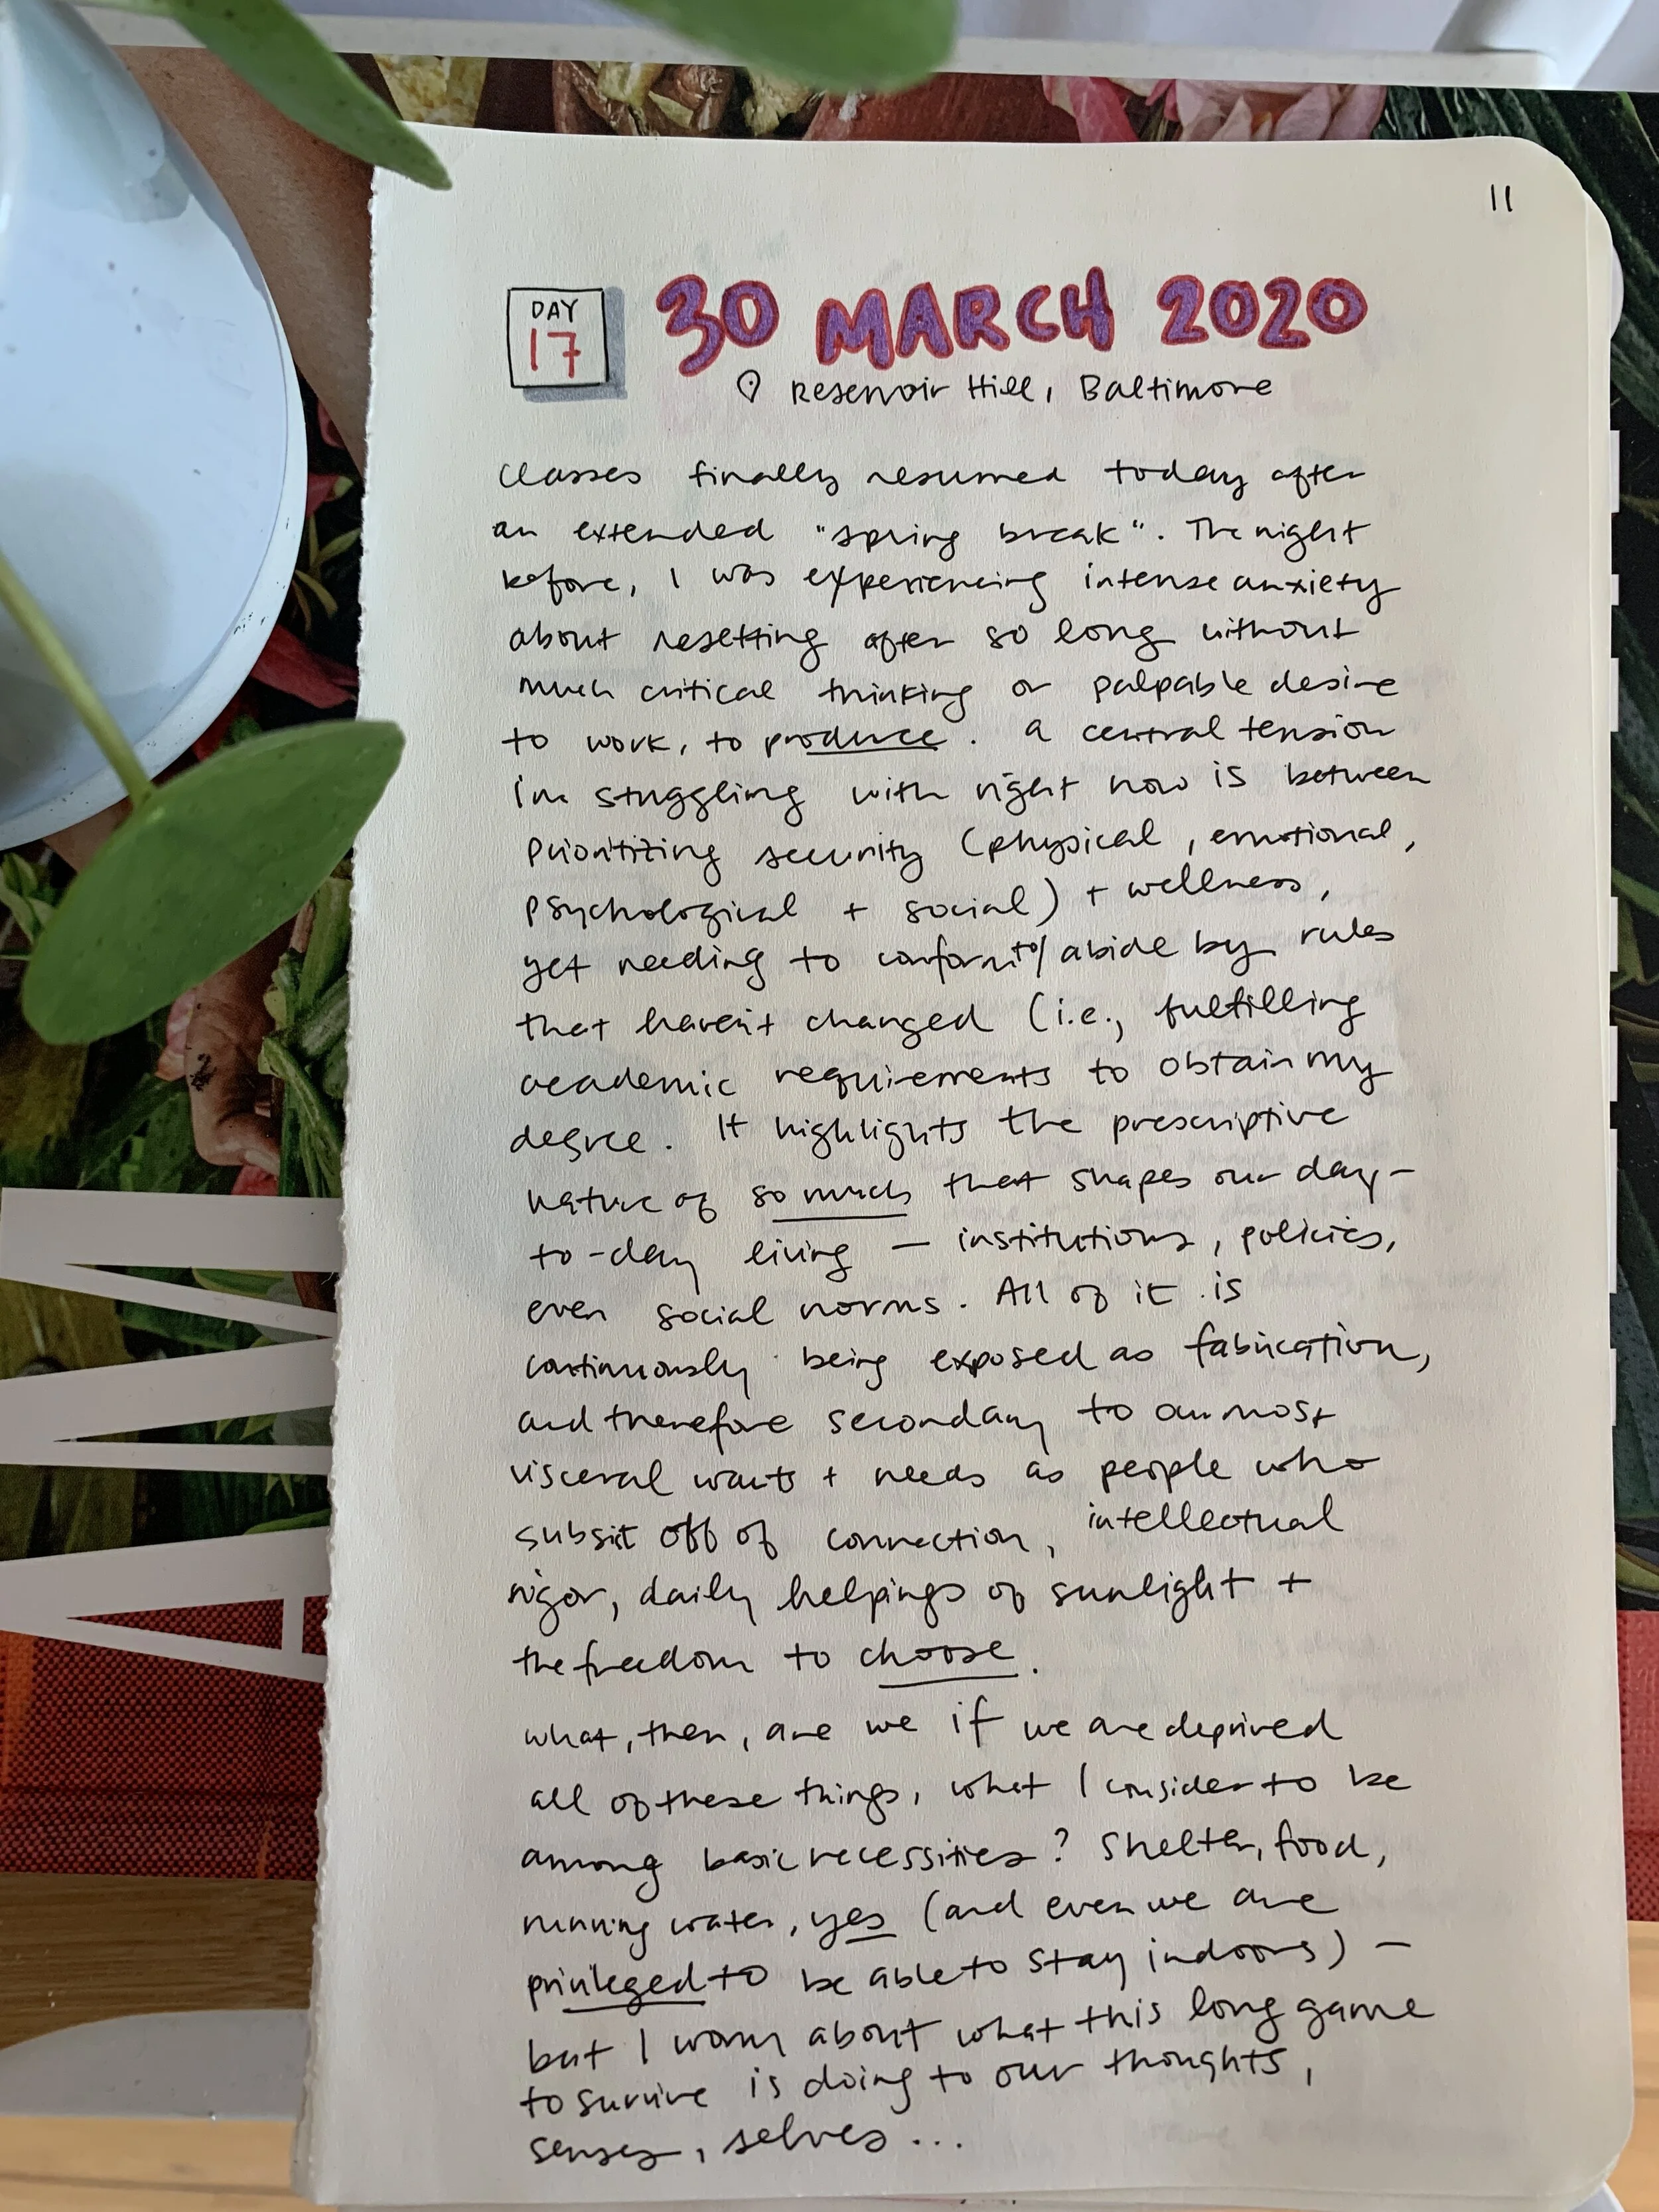 11
DAY
17
30 MARCH 2020
Reservoir Hill, Baltimore
Classes finally resumed today after
an extended "spring break". The night
before, I was experiencing intense anxiety
about resetting after so long without
much critical thinking or palpable desire
to work, to produce. A central tension
I'm struggling with right now is between
prioritizing security (physical, emotional,
psychological + social) + wellness,
yet needing to conform to/abide by rules
that haven't changed (i.e., fulfilling
academic requirements to obtain my
degree. It highlights the prescriptive
nature of so much that shapes our day-
to-day living — institutions, policies,
even social norms. All of it is
continuously being exposed as fabrication,
and therefore secondary to our most
visceral wants + needs as people who
subsist off of connection, intellectual
rigor, daily helpings of sunlight +
the freedom to choose.
what, then, are we if we are deprived
all of these things, what I consider to be
among basic necessities? Shelter, food,
running water, yes (and even we are
privileged to be able to stay indoors) —
but I worry about what this long game
to survive is doing to our thoughts,
senses, selves...